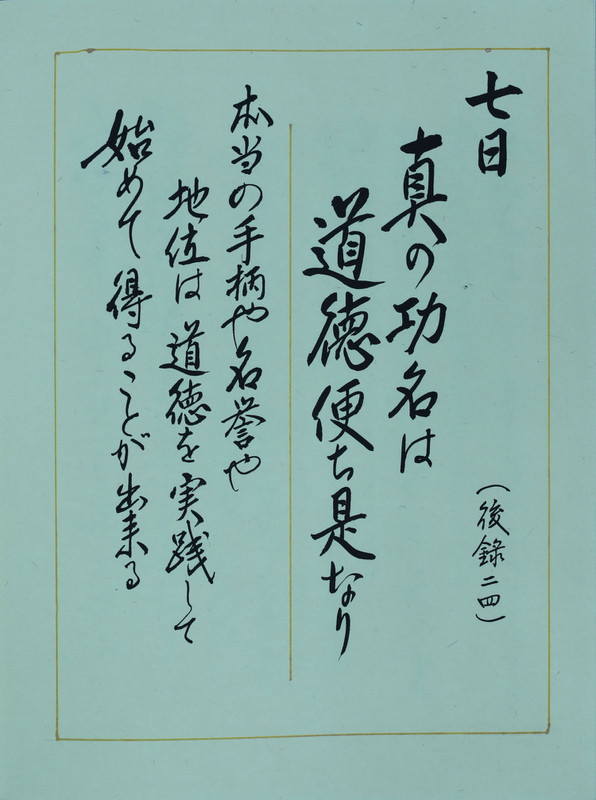 七日
（後録二四）
真の功名は
道徳便ち是なり
本当の手柄や名誉や
地位は道徳を実践して
始めて得ることが出来る